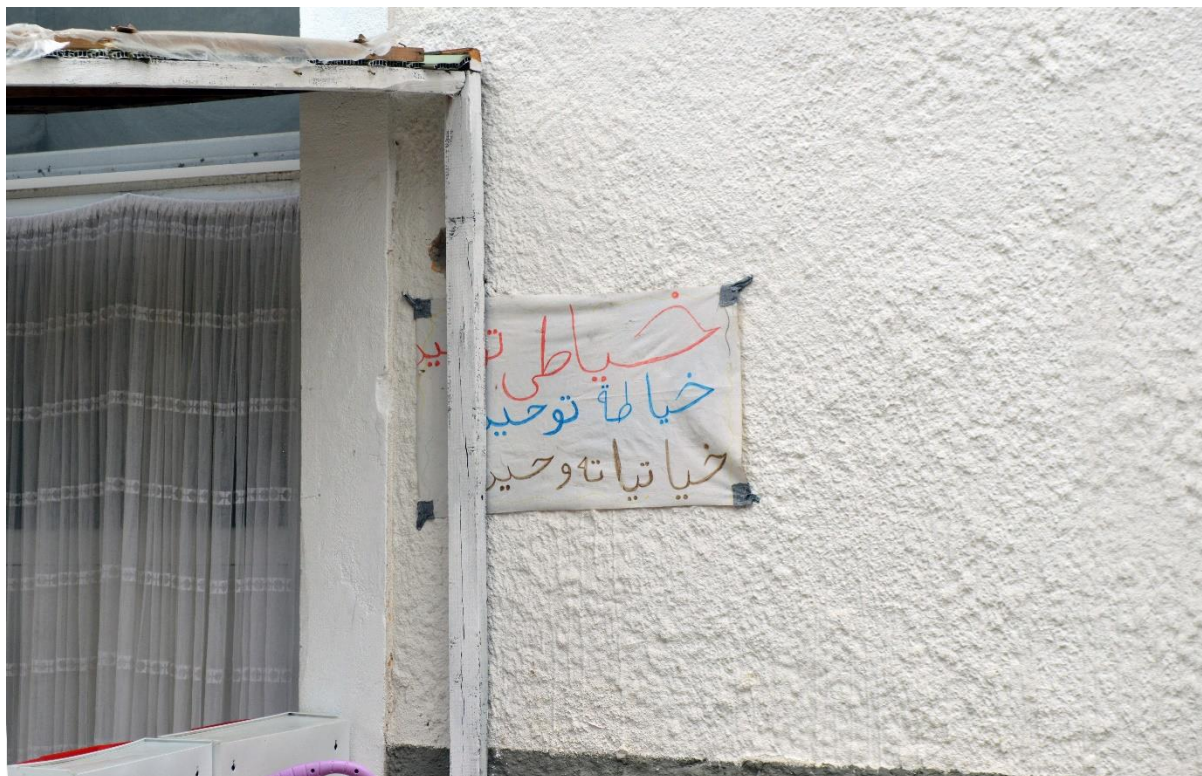 خیاطی توحید
خیاطة توحید
خیا تیا ته وحید